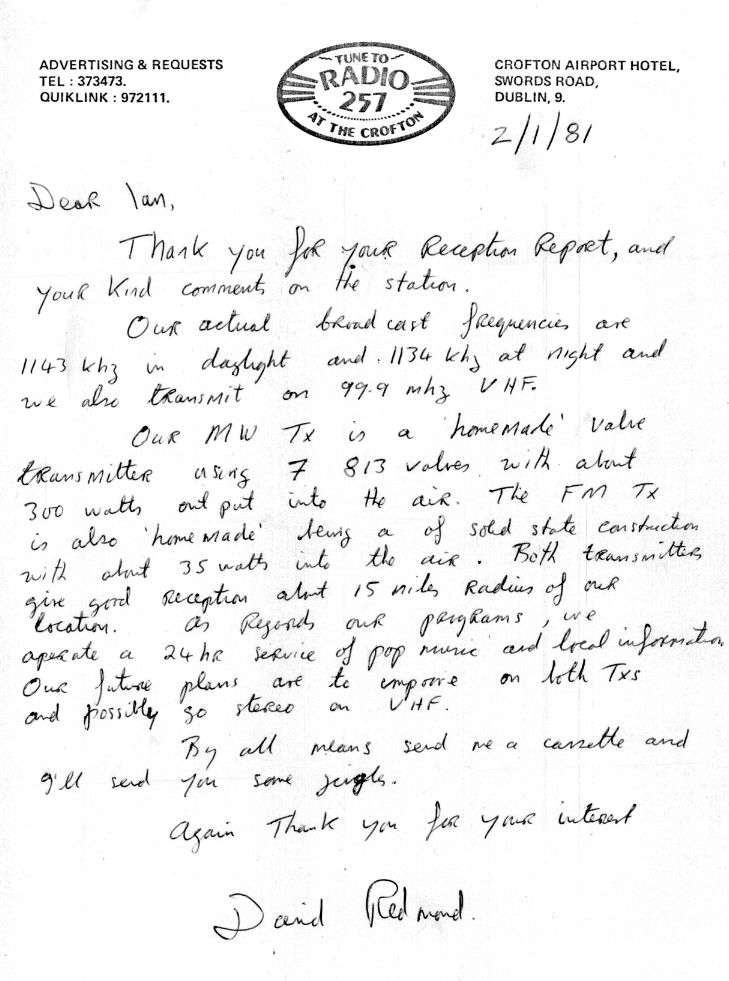 ADVERTISING & REQUESTS
TEL : 373473.
QUIKLINK : 972111.
TUNE TO
RADIO
257
AT THE CROFTON
CROFTON AIRPORT HOTEL,
SWORDS ROAD,
DUBLIN, 9.
2/1/81
Dear Ian,
Thank you for your Reception Report, and
your kind comments on the station.
Our actual broadcast frequencies are
1143 khz in daylight and 1134 khz at night and
we also transmit on 99.9 mhz VHF.
Our MW Tx is a 'homemade' valve
transmitter using 7 813 valves with about
300 watts out put into the air. The FM Tx
is also 'home made' being a of solid state construction
with about 35 watts into the air. Both transmitters
give good reception about 15 miles radius of our
location. As Regards our programs, we
operate a 24 hr service of pop music and local information
Our future plans are to improve on both Txs
and possibly go stereo on VHF.
By all means send me a cassette and
I'll send you some jingles.
Again Thank you for your interest
David Redmond.